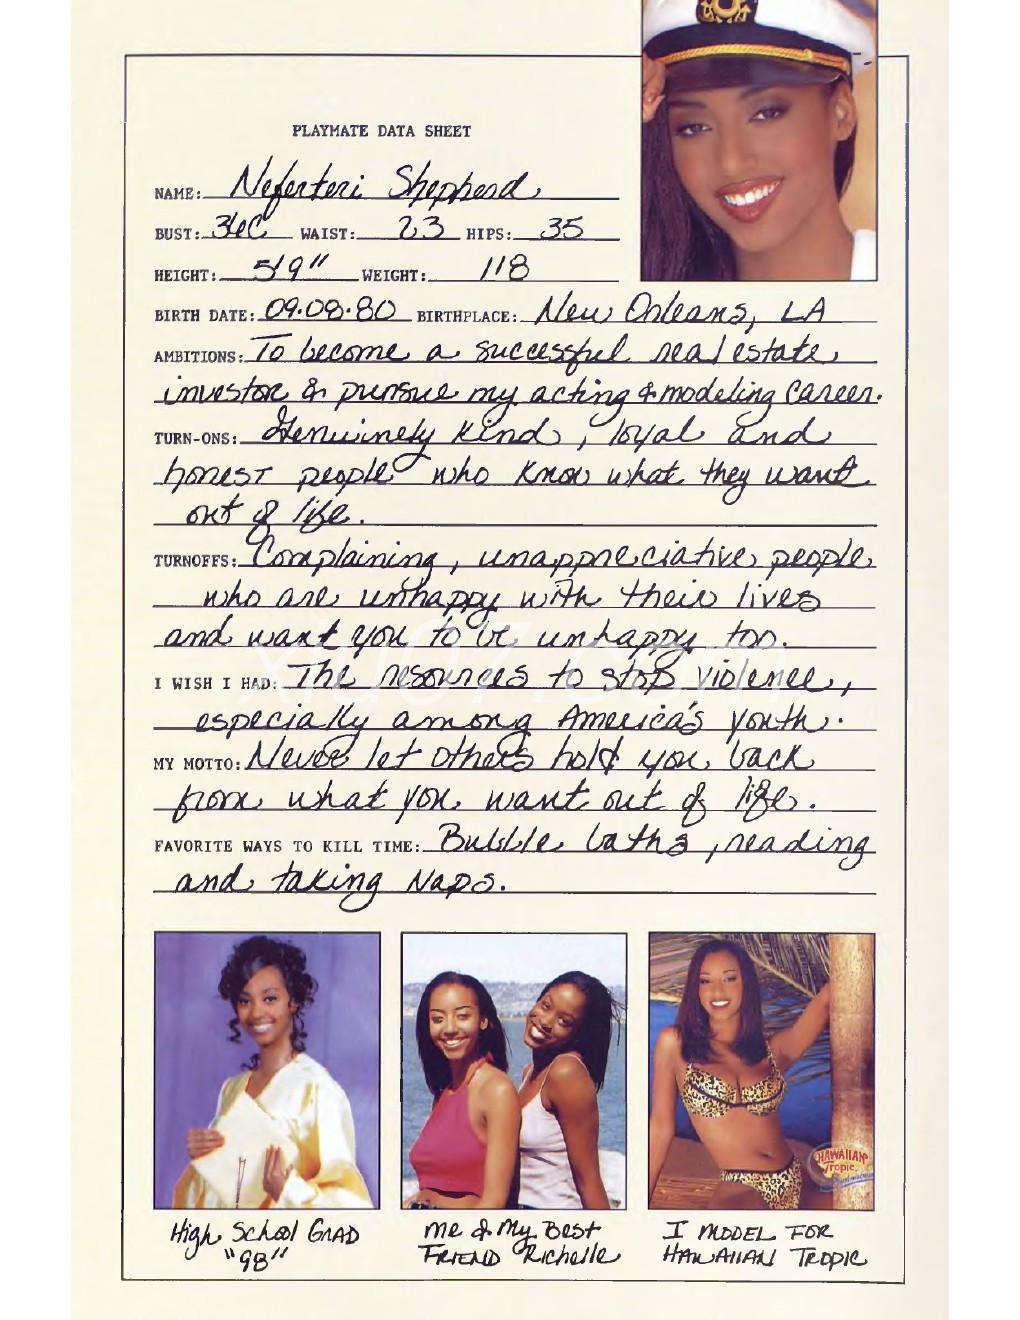 PLAYMATE DATA SHEET
NAME: Neferteri Shepherd
BUST: 34C WAIST: 23 HIPS: 35
HEIGHT: 5'9" WEIGHT: 118
BIRTH DATE: 09.08.80 BIRTHPLACE: New Orleans, LA
AMBITIONS: To become a successful real estate
investor & pursue my acting & modeling career.
TURN-ONS: Genuinely kind, loyal and
honest people who know what they want
out of life.
TURNOFFS: Complaining, unappreciative people
who are unhappy with their lives
and want you to be unhappy too.
I WISH I HAD: The resources to stop violence,
especially among America's youth.
MY MOTTO: Never let others hold you back
from what you want out of life.
FAVORITE WAYS TO KILL TIME: Bubble baths, reading
and taking naps.
HAWAIIAN
Tropic
High School GRAD
"98"
ME & My BEST
FRIEND Richelle
I MODEL FOR
HAWAIIAN TROPIC